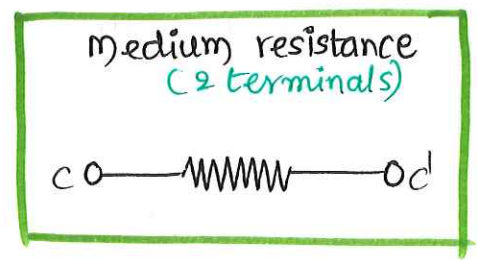 Medium resistance
(2 terminals)
C C'